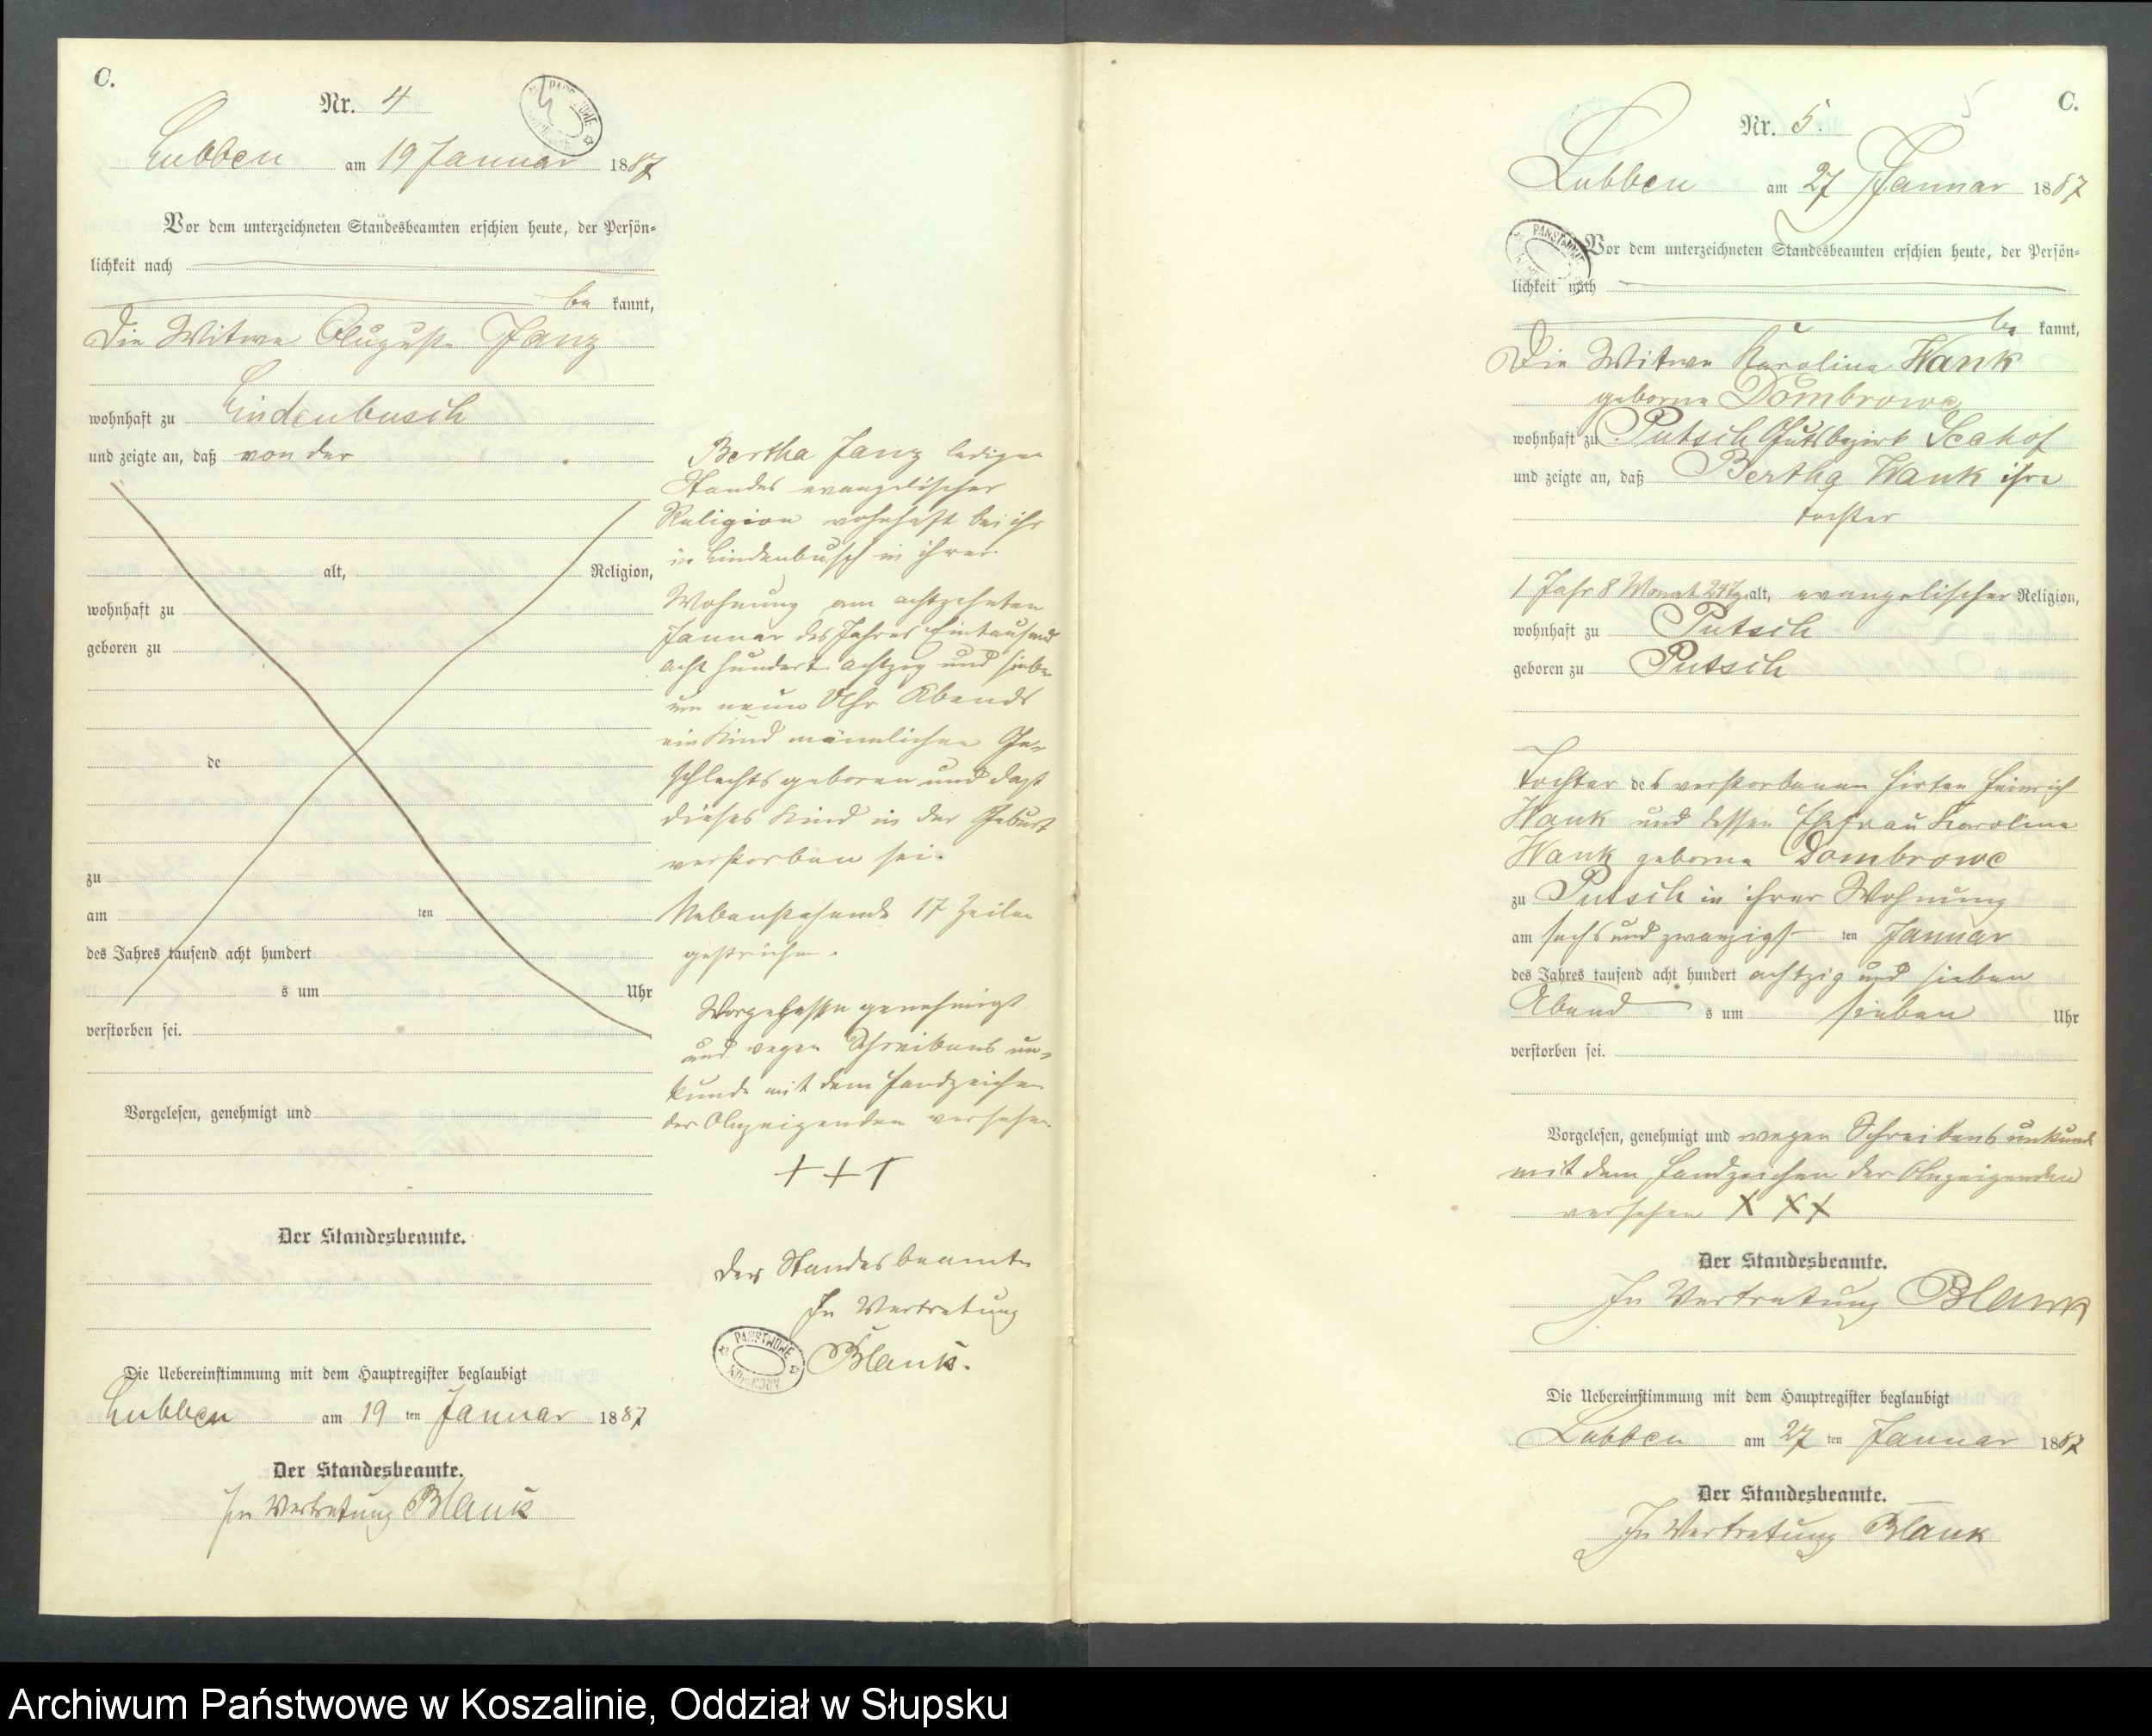 C.
Nr. 4
Lubben am 19 Januar 1887
Vor dem unterzeichneten Standesbeamten erschien heute, der Persön-
lichkeit nach
be kannt,
die Witwe Auguste Janz
wohnhaft zu Lindenbusch
und zeigte an, daß von der
alt, Religion,
wohnhaft zu
geboren zu
de
zu
am ten
des Jahres tausend acht hundert
s um Uhr
verstorben sei.
Vorgelesen, genehmigt und
Der Standesbeamte.
Die Uebereinstimmung mit dem Hauptregister beglaubigt
Lubben am 19 ten Januar 1887
Der Standesbeamte.
In Vertretung Blank
Bertha Janz ledigen
Standes evangelischer
Religion wohnhaft bei ihr
in Lindenbusch in ihrer
Wohnung am achtzehnten
Januar des Jahres Eintausend
acht hundert achtzig und sieben
um neun Uhr Abends
ein Kind männlichen Ge-
schlechts geboren und daß
dieses Kind in der Geburt
verstorben sei.
Nebenstehende 17 Zeilen
gestrichen.
Vorgelesen genehmigt
und wegen Schreibens un-
kunde mit dem Handzeichen
der Anzeigenden versehen
+ + +
Der Standesbeamte
In Vertretung
PAŃSTWOWE
Blank.
C.
5
Nr. 5.
Lubben am 27 Januar 1887
PAŃSTWOWE
Vor dem unterzeichneten Standesbeamten erschien heute, der Persön-
lichkeit nach
be kannt,
Die Witwe Karoline Wank
geborne Dombrowe
wohnhaft zu Putsch Gutsbezirk Seehof
und zeigte an, daß Bertha Wank ihre
Tochter
1 Jahr 8 Monat 24 Tg. alt, evangelischer Religion,
wohnhaft zu Putsch
geboren zu Putsch
Tochter des verstorbenen Hirten Heinrich
Wank und dessen Ehefrau Karoline
Wank geborne Dombrowe
zu Putsch in ihrer Wohnung
am sechs und zwanzigst ten Januar
des Jahres tausend acht hundert achtzig und sieben
Abend s um sieben Uhr
verstorben sei.
Vorgelesen, genehmigt und wegen Schreibens unkunde
mit dem Handzeichen der Anzeigenden
versehen X X X
Der Standesbeamte.
In Vertretung Blank
Die Uebereinstimmung mit dem Hauptregister beglaubigt
Lubben am 27 ten Januar 1887
Der Standesbeamte.
In Vertretung Blank
Archiwum Państwowe w Koszalinie, Oddział w Słupsku